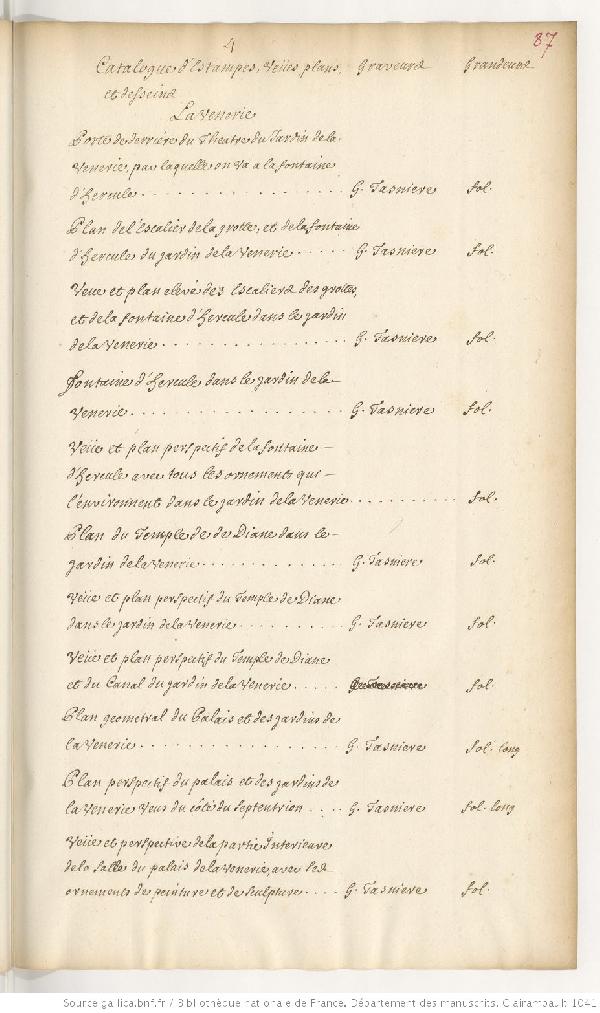 4
87
Catalogue d'Estampes, Veües plans, Graveurs Grandeurs
et desseins
La Venerie
Porte de derriere du Theatre du Jardin de la
Venerie, par laquelle on va a la fontaine
d'Hercule . . . . . . . . . . . . G. Tasniere fol.
Plan de l'Escalier de la grotte, et de la fontaine
d'Hercule du jardin de la Venerie . . . . . G. Tasniere fol.
Veue et plan elevé des Escaliers des grottes,
et de la fontaine d'Hercule dans le jardin
de la Venerie . . . . . . . . . . . . G. Tasniere fol.
Fontaine d'Hercule dans le jardin de la
Venerie . . . . . . . . . . . . G. Tasniere fol.
Veüe et plan perspectif de la fontaine
d'Hercule avec tous les ornements qui
l'environnent dans le jardin de la Venerie . . . . . . . . . . fol.
Plan du Temple de de Diane dans le
jardin de la Venerie . . . . . . . . . . G. Tasniere fol.
Veüe et plan perspectif du Temple de Diane
dans le jardin de la Venerie . . . . . . . . G. Tasniere fol.
Veüe et plan perspectif du Temple de Diane
et du Canal du jardin de la Venerie . . . . . fol.
Plan geometral du Palais et des jardins de
la Venerie . . . . . . . . . . . . G. Tasniere fol. long
Plan perspectif du palais et des jardins de
la Venerie Veus du côté du Septentrion . . . . G. Tasniere fol. long
Veüe et perspective de la partie Interieure
de la Salle du palais de la Venerie, avec les
ornements de peinture et de sculpture . . . . G. Tasniere fol.
Source gallica.bnf.fr / Bibliothèque nationale de France. Département des manuscrits. Clairambault 1041